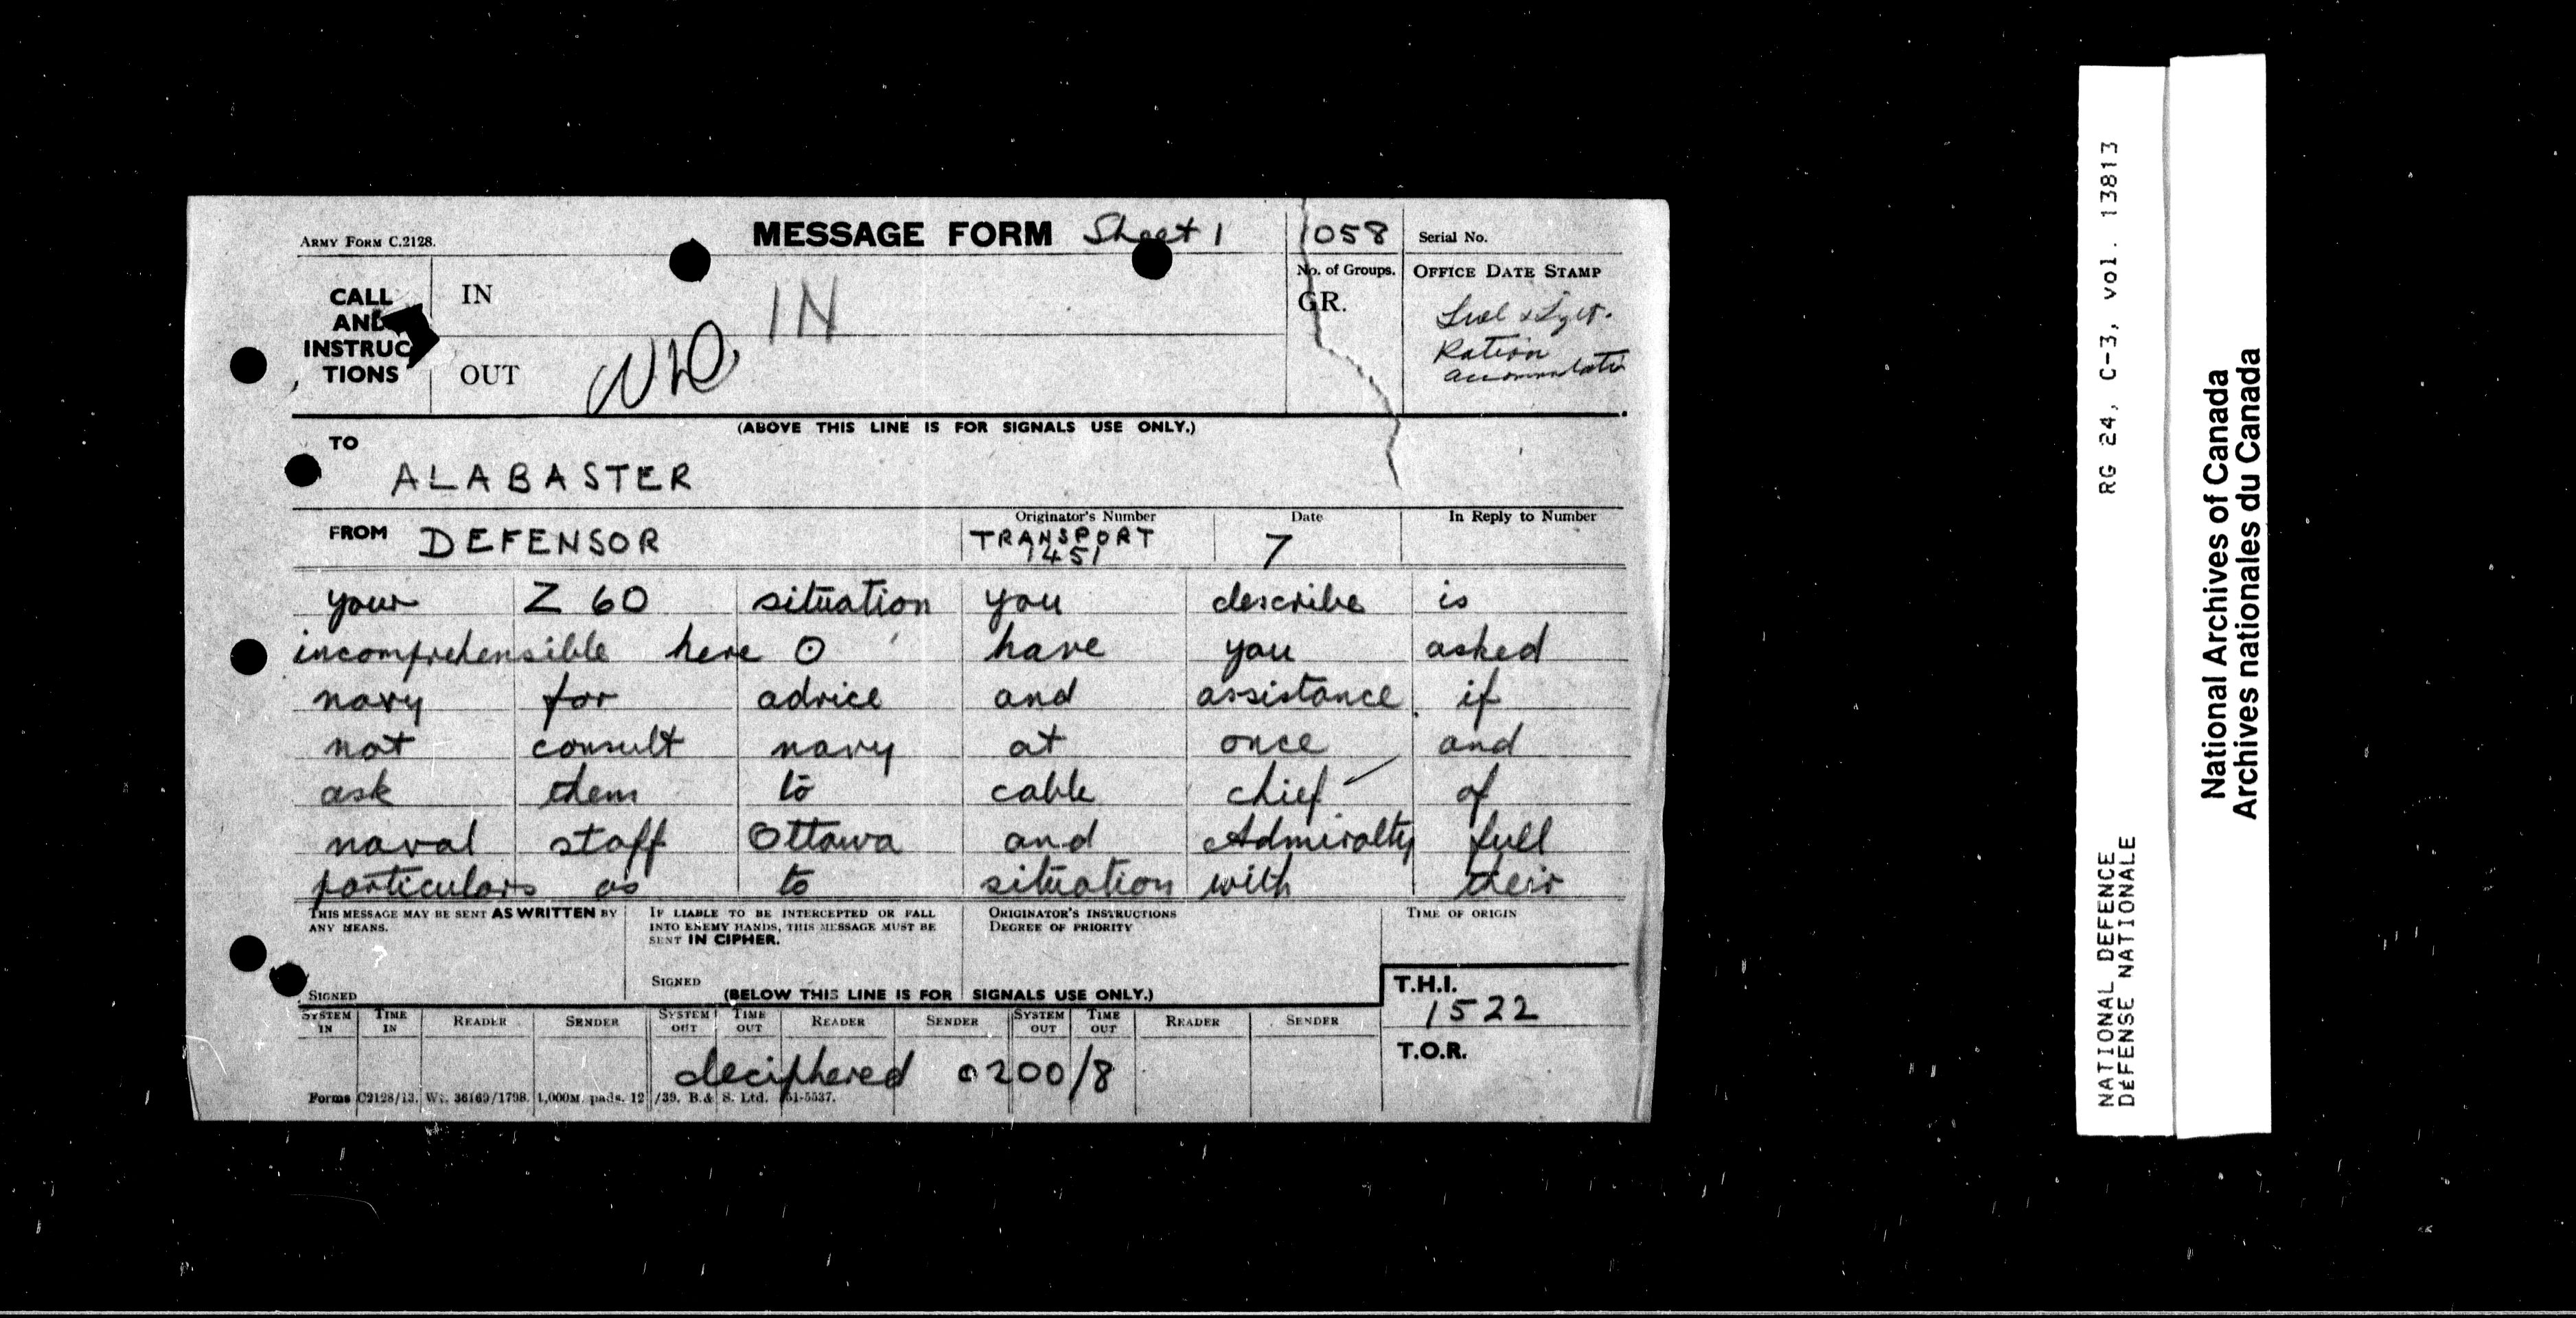 ARMY FORM C.2128.
MESSAGE FORM Sheet 1
1058
Serial No.
CALL AND INSTRUCTIONS
IN
IN
OUT
No. of Groups.
GR.
OFFICE DATE STAMP
Ration
(ABOVE THIS LINE IS FOR SIGNALS USE ONLY.)
TO
ALABASTER
FROM DEFENSOR
Originator's Number
TRANSPORT
1451
Date
7
In Reply to Number
your Z 60 situation you describe is
incomprehensible here ⊙ have you asked
navy for advice and assistance if
not consult navy at once and
ask them to cable chief of
naval staff Ottawa and Admiralty full
particulars as to situation with their
THIS MESSAGE MAY BE SENT AS WRITTEN BY
ANY MEANS.
SIGNED
IF LIABLE TO BE INTERCEPTED OR FALL
INTO ENEMY HANDS, THIS MESSAGE MUST BE
SENT IN CIPHER.
SIGNED
ORIGINATOR'S INSTRUCTIONS
DEGREE OF PRIORITY
TIME OF ORIGIN
(BELOW THIS LINE IS FOR SIGNALS USE ONLY.)
T.H.I.
1522
T.O.R.
SYSTEM IN TIME IN READER SENDER SYSTEM OUT TIME OUT READER SENDER SYSTEM OUT TIME OUT READER SENDER
deciphered 0200/8
Forms C2128/13. Wt. 36169/1798. 1,000M. pads. 12/39. B.& S. Ltd. 51-5537.
NATIONAL DEFENCE RG 24, C-3, vol. 13813
DÉFENSE NATIONALE
National Archives of Canada
Archives nationales du Canada